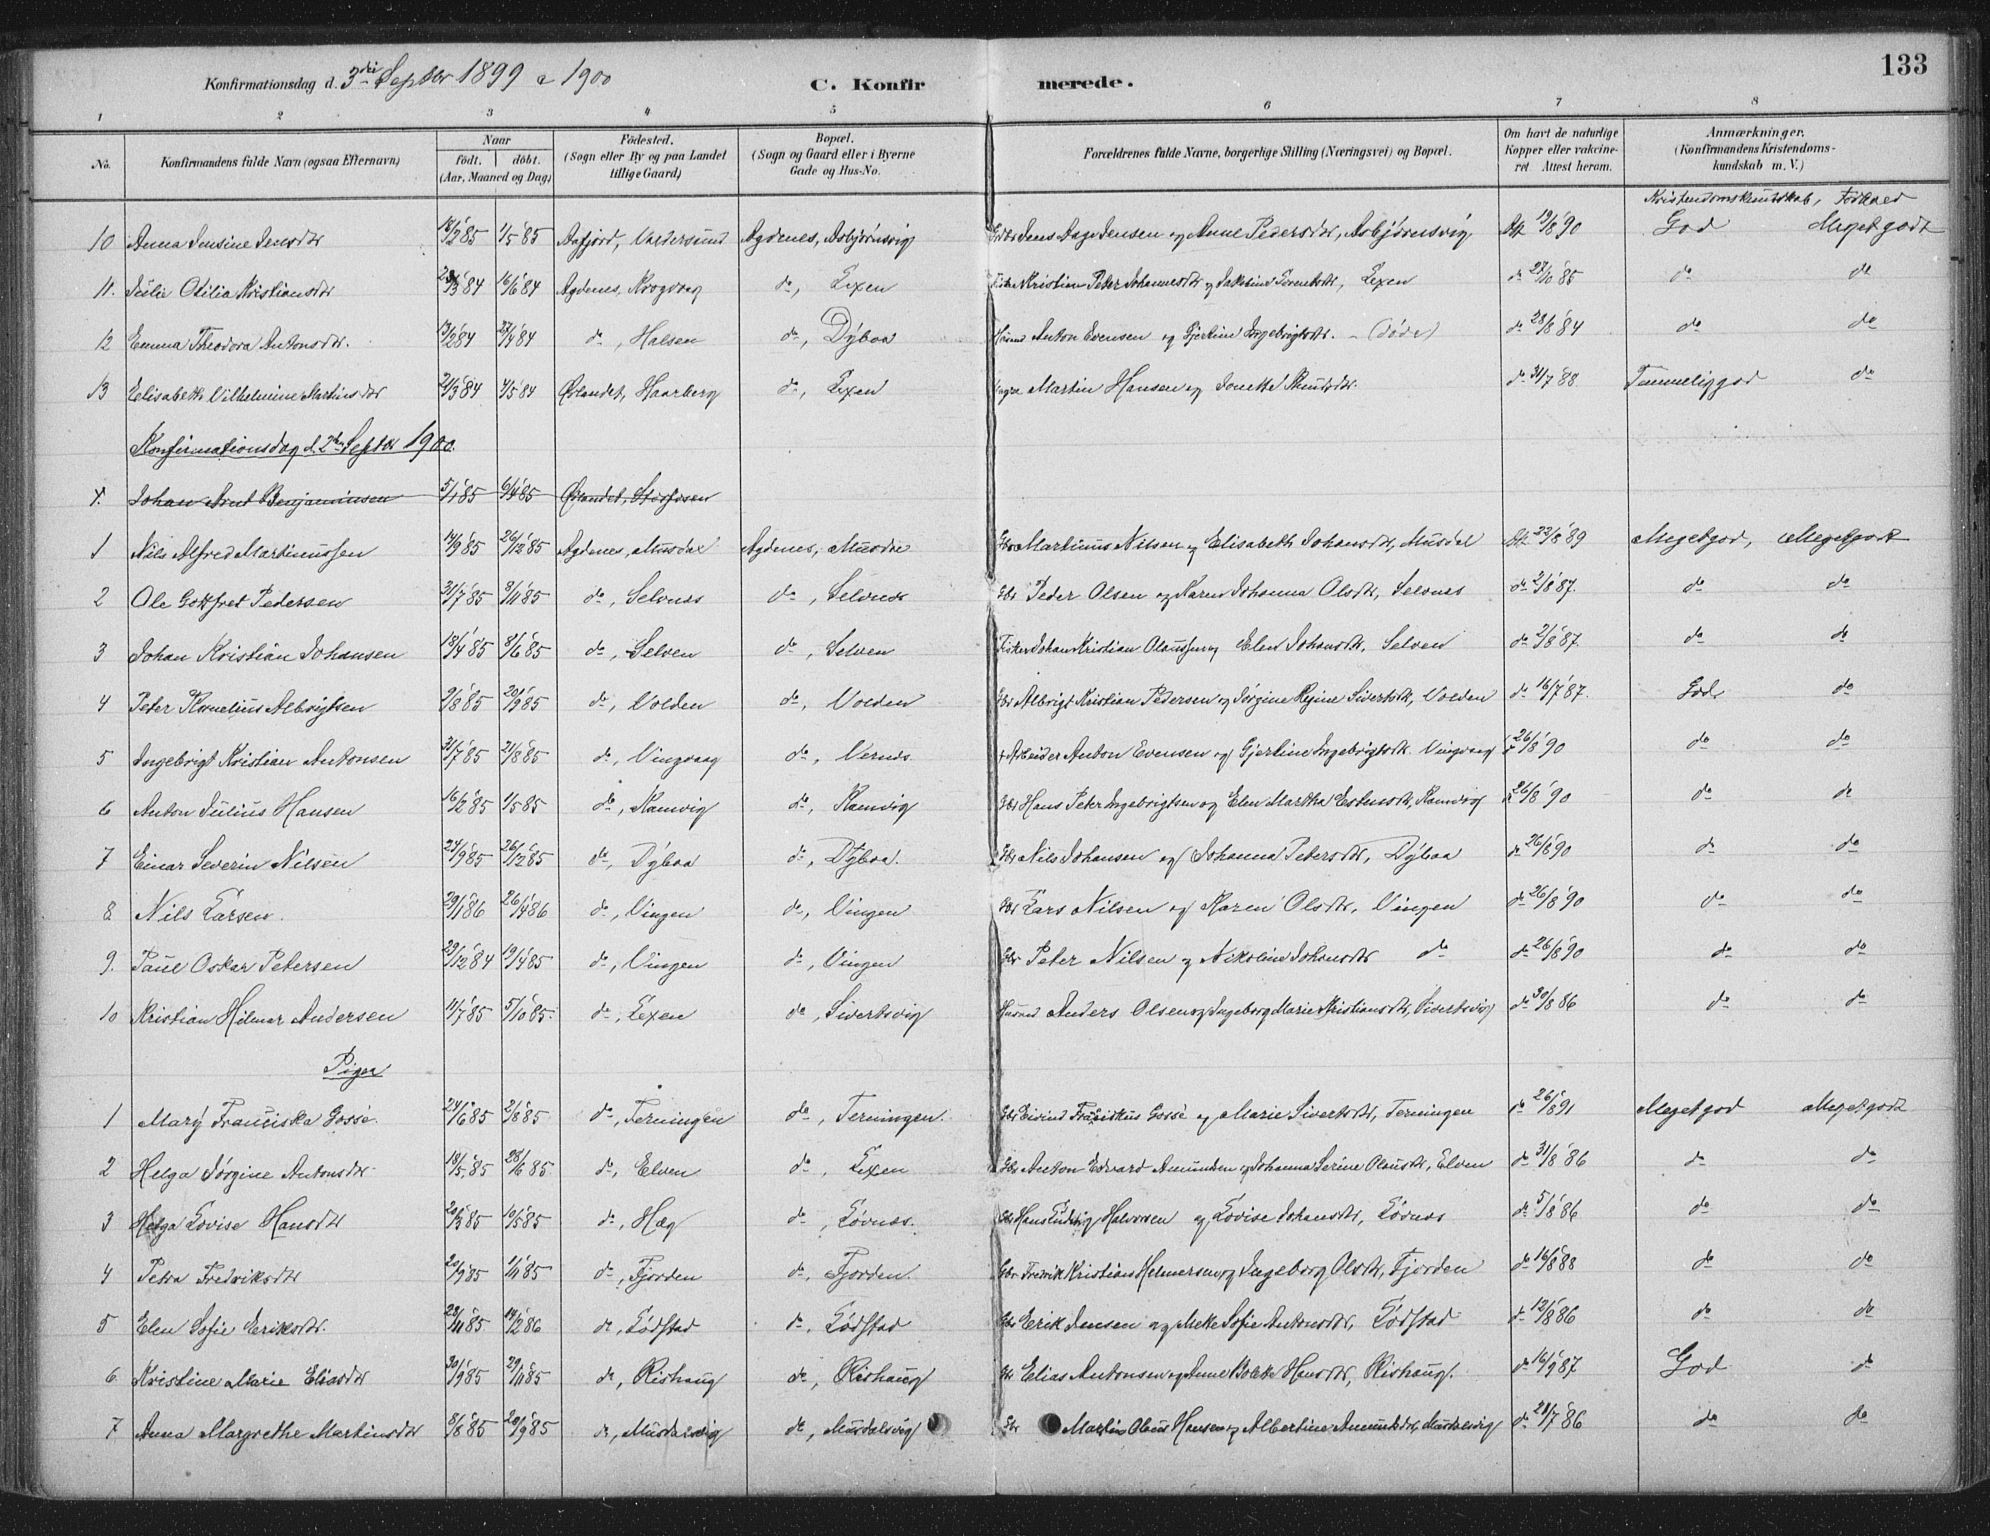 Konfirmationsdag d. 3die Septbr 1899 & 1900 C. Konfirmerede. 133
1 2 3 4 5 6 7 8
No. Konfirmandens fulde Navn (ogsaa Efternavn) Naar født. döbt. (Aar, Maaned og Dag) Födested. (Sogn eller By og paa Landet tillige Gaard) Bopæl. (Sogn og Gaard eller i Byerne Gade og Hus-No. Forældrenes fulde Navne, borgerlige Stilling (Næringsvei) og Bopæl. Om havt de naturlige Kopper eller vakcineret Attest herom. Anmærkninger. (Konfirmandens Kristendomskundskab m. V.)
Kristendomskundskab, Forhold
10 Anna Jensine Jensdtr 16/2 85 1/5 85 Aafjord, Valdersund Agdenes, Asbjørnsvig Jens Aage Jensen og Anne Pedersdtr, Asbjørnsvig Att 19/8 90 God Megetgodt
11. Julie Otilia Kristiansdtr 84 16/6 84 Agdenes, Krogvaag do, Lexen Kristian Peter Johannes og Jakobine Lexen do 27/10 85 do do
12 Emma Theodora Antonsdtr. 13/2 84 27/4 84 do, Halsen do, Dÿboa Husmd Anton Evensen og Gjertine Ingebrigtsdtr. - (døde) do 28/8 84 do do
13 Elisabeth Vilhelmine Martinsdtr 2/3 84 4/5 84 Ørlandet, Haarberg do, Lexen Martin Hansen og Jonette Knudsdtr. do 31/7 88 Temmeliggod do
Konfirmationsdag d. 2den Septbr 1900.
1. Johan Arnt Benjaminsen 5/1 85 6/4 85 Ørlandet,
1 Nils Alfred Martinussen 14/9 85 26/12 85 Agdenes, Musdal Agdenes, Musdal Gbr Martinus Nilsen og Elisabeth Johansdtr, Musdal Att 22/8 89 Megetgod, Megetgodt
2 Ole Gottfret Pedersen 31/7 85 8/11 85 do, Selvnes do, Selvnes Gbr Peder Olsen og Karen Johanna Olsdtr, Selvnes do 2/8 87. do do
3 Johan Kristian Johansen 18/4 85 8/6 85 do, Selven do, Selven Fisker Johan Kristian Olaussen og Elen Johansdtr, Selven do 2/8 87. do do
4 Peter Kornelius Albrigtsen 2/8 85 20/9 85 do, Volden do, Volden Gbr Albrigt Kristian Pedersen og Jørgine Regine Sivertsdtr, Volden do 16/7 87. God do
5 Ingebrigt Kristian Antonsen 31/7 85 21/8 85 do, Vingvaag do, Vernes Arbeider Anton Evensen og Gjertine Ingebrigtsdtr. Vingvaag 26/8 90 do do
6 Anton Julius Hansen 16/2 85 1/5 85 do, Ramvig do, Ramvig Gbr Hans Peter Ingebrigtsen og Elen Martha Estensdtr, Ramvig 26/8 90 do do
7 Einar Severin Nilsen 24/9 85 26/12 85 do, Dÿboa do, Dÿboa. Gbr Nils Johansen og Johanna Petersdtr, Dÿboa do 26/8 90 do do
8 Nils Larsen. 29/1 86 26/4 86 do, Vingen do, Vingen Gbr Lars Nilsen og Karen Olsdtr, Vingen do 26/8 90 do do
9. Paul Oskar Petersen 29/12 84 19/4 85 do, Vingen do, Vingen Gbr Peter Nilsen og Nikoline Johansdtr do do 26/8 90 do do
10 Kristian Hilmar Andersen 11/7 85 5/10 85. do, Lexen do, Sivertsvig Husmd Anders Olsen og Ingeborg Marie Kristiansdtr, Sivertsvig do 30/8 86 do do
Piger
1 Marÿ Franciska Gosse. 24/6 85 2/8 85 do, Terningen do, Terningen. Gbr Eivind Franciskus Gosse og Marie Sivertsdtr, Terningen do 26/8 91 Megetgod Megetgodt
2 Helga Jørgine Antonsdtr 18/5 85 28/6 85 do, Elven do, Lexen Gbr Anton Edvard Amundsen og Johanna Serine Olausdtr, Elven do 31/8 86 do do
3 Helga Lovise Hansdtr 20/3 85 10/5 85 do, Hæg do, Løvnes. Gbr Hans Ludvig Halvorsen og Lovise Johansdtr, Løvnes do 5/8 86 do do
4 Petra Fredriksdtr 20/9 85 1/11 85 do, Fjorden do, Fjorden. Gbr Fredrik Kristian Helmersen og Ingeborg Olsdtr, Fjorden do 16/8 88 do do
5 Elen Sofie Eriksdtr. 28/11 85. 14/2 86 do, Lødstad do, Lødstad Gbr Erik Jensen og Mette Sofie Antonsdtr, Lødstad do 12/8 86 do do
6 Kristine Marie Eliasdtr 30/9 85 29/11 85 do, Rishaug do, Rishaug Gbr Elias Antonsen og Anne Bolette Hansdtr, Rishaug. do 16/9 87 God do
7 Anna Margrethe Martinsdtr 8/8 85 20/9 85 do, Musdalsvig do, Musdalsvig Gbr Martin Olaus Hansen og Albertine Amundsdtr, Musdalsvig do 28/7 86 do do